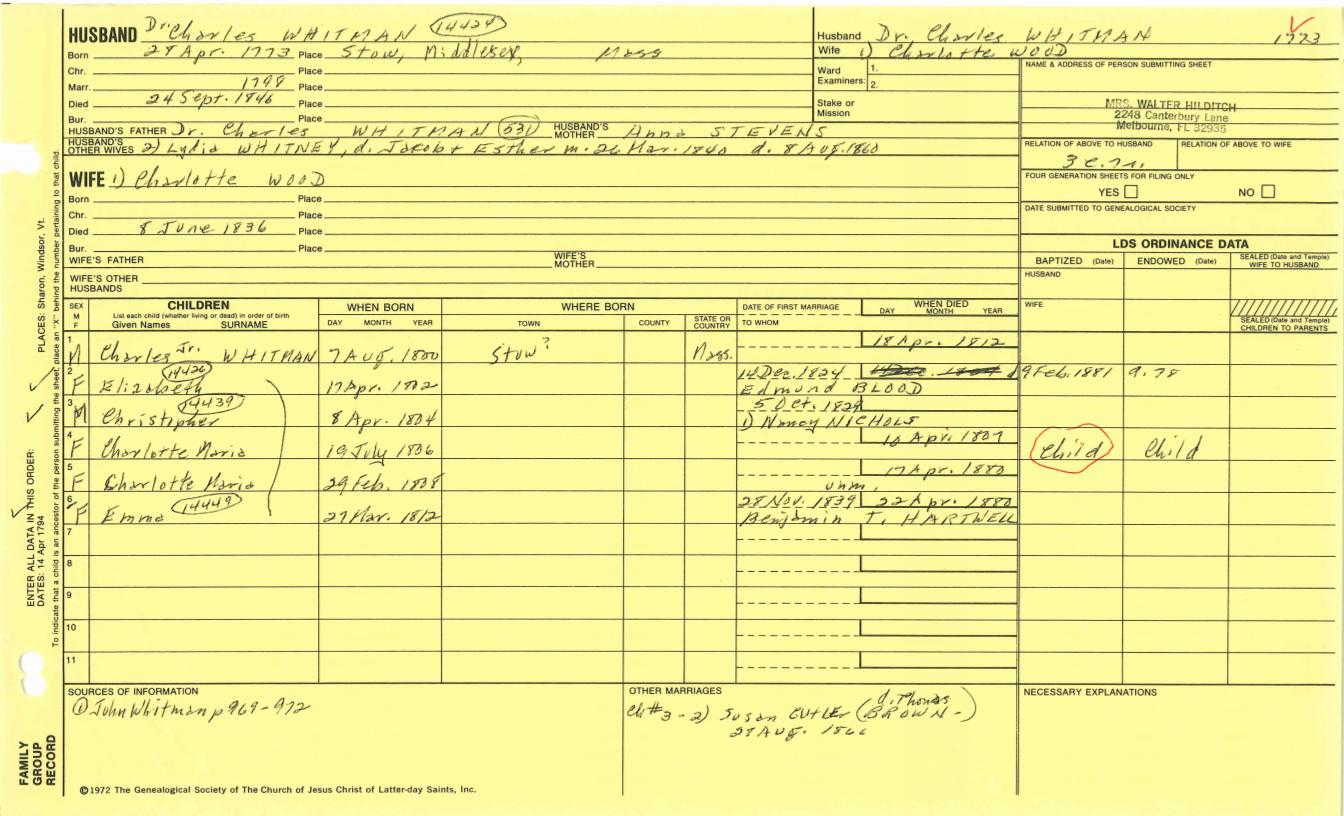 HUSBAND Dr. Charles WHITMAN 14424
Born 28 Apr. 1773 Place Stow, Middlesex, Mass
Chr. Place
Marr. 1798 Place
Died 24 Sept. 1846 Place
Bur. Place
HUSBAND'S FATHER Dr. Charles WHITMAN 531 HUSBAND'S MOTHER Anna STEVENS
HUSBAND'S OTHER WIVES 2) Lydia WHITNEY, d. Jacob + Esther m. 26 Mar. 1840 d. 8 AUG. 1860
Husband Dr. Charles WHITMAN 1773
Wife 1) Charlotte WOOD
Ward Examiners: 1.
2.
Stake or Mission
NAME & ADDRESS OF PERSON SUBMITTING SHEET
MRS. WALTER HILDITCH
2248 Canterbury Lane
Melbourne, FL 32935
RELATION OF ABOVE TO HUSBAND RELATION OF ABOVE TO WIFE
FOUR GENERATION SHEETS FOR FILING ONLY
YES NO
DATE SUBMITTED TO GENEALOGICAL SOCIETY
WIFE 1) Charlotte WOOD
Born Place
Chr. Place
Died 8 June 1836 Place
Bur. Place
WIFE'S FATHER WIFE'S MOTHER
WIFE'S OTHER HUSBANDS
LDS ORDINANCE DATA
BAPTIZED (Date) ENDOWED (Date) SEALED (Date and Temple) WIFE TO HUSBAND
HUSBAND
WIFE
SEALED (Date and Temple) CHILDREN TO PARENTS
SEX M F
CHILDREN
List each child (whether living or dead) in order of birth
Given Names SURNAME
WHEN BORN
DAY MONTH YEAR
WHERE BORN
TOWN COUNTY STATE OR COUNTRY
DATE OF FIRST MARRIAGE
TO WHOM
WHEN DIED
DAY MONTH YEAR
1 M Charles Jr. WHITMAN 7 AUG. 1800 Stow? Mass. 18 Apr. 1812
2 F Elizabeth 14426 17 Apr. 1802 14 Dec. 1824 9 Feb. 1881
Edmund BLOOD
3 M Christopher 14439 8 Apr. 1804 5 Oct. 1829
1) Nancy NICHOLS
4 F Charlotte Maria 19 July 1806 10 Apr. 1807 Child Child
5 F Charlotte Maria 29 Feb. 1808 17 Apr. 1880
unm.
6 F Emma 14449 27 Mar. 1812 28 Nov. 1839 22 Apr. 1880
Benjamin T. HARTWELL
7
8
9
10
11
SOURCES OF INFORMATION
① John Whitman p 969-972
OTHER MARRIAGES
Ch #3 - 2) Susan CUTLER (d. Thomas BROWN-)
27 AUG. 1866
NECESSARY EXPLANATIONS
©1972 The Genealogical Society of The Church of Jesus Christ of Latter-day Saints, Inc.
FAMILY GROUP RECORD
ENTER ALL DATA IN THIS ORDER:
DATES: 14 Apr 1794
PLACES: Sharon, Windsor, Vt.
To indicate that a child is an ancestor of the person submitting the sheet, place an "X" behind the number pertaining to that child.